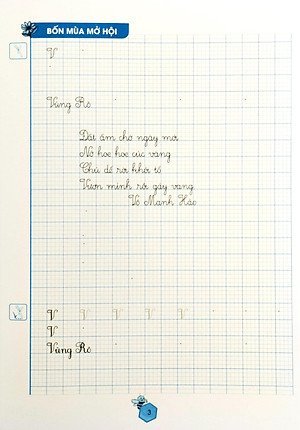 BỐN MÙA MỞ HỘI
V
Vũng Rô
Đất ấm cho ngày mới
Nở hoe hoe cúc vàng
Chú dế rơi khỏi tổ
Vươn mình rồi gáy vang
Võ Mạnh Hảo
V V V V V
V
Vũng Rô
3